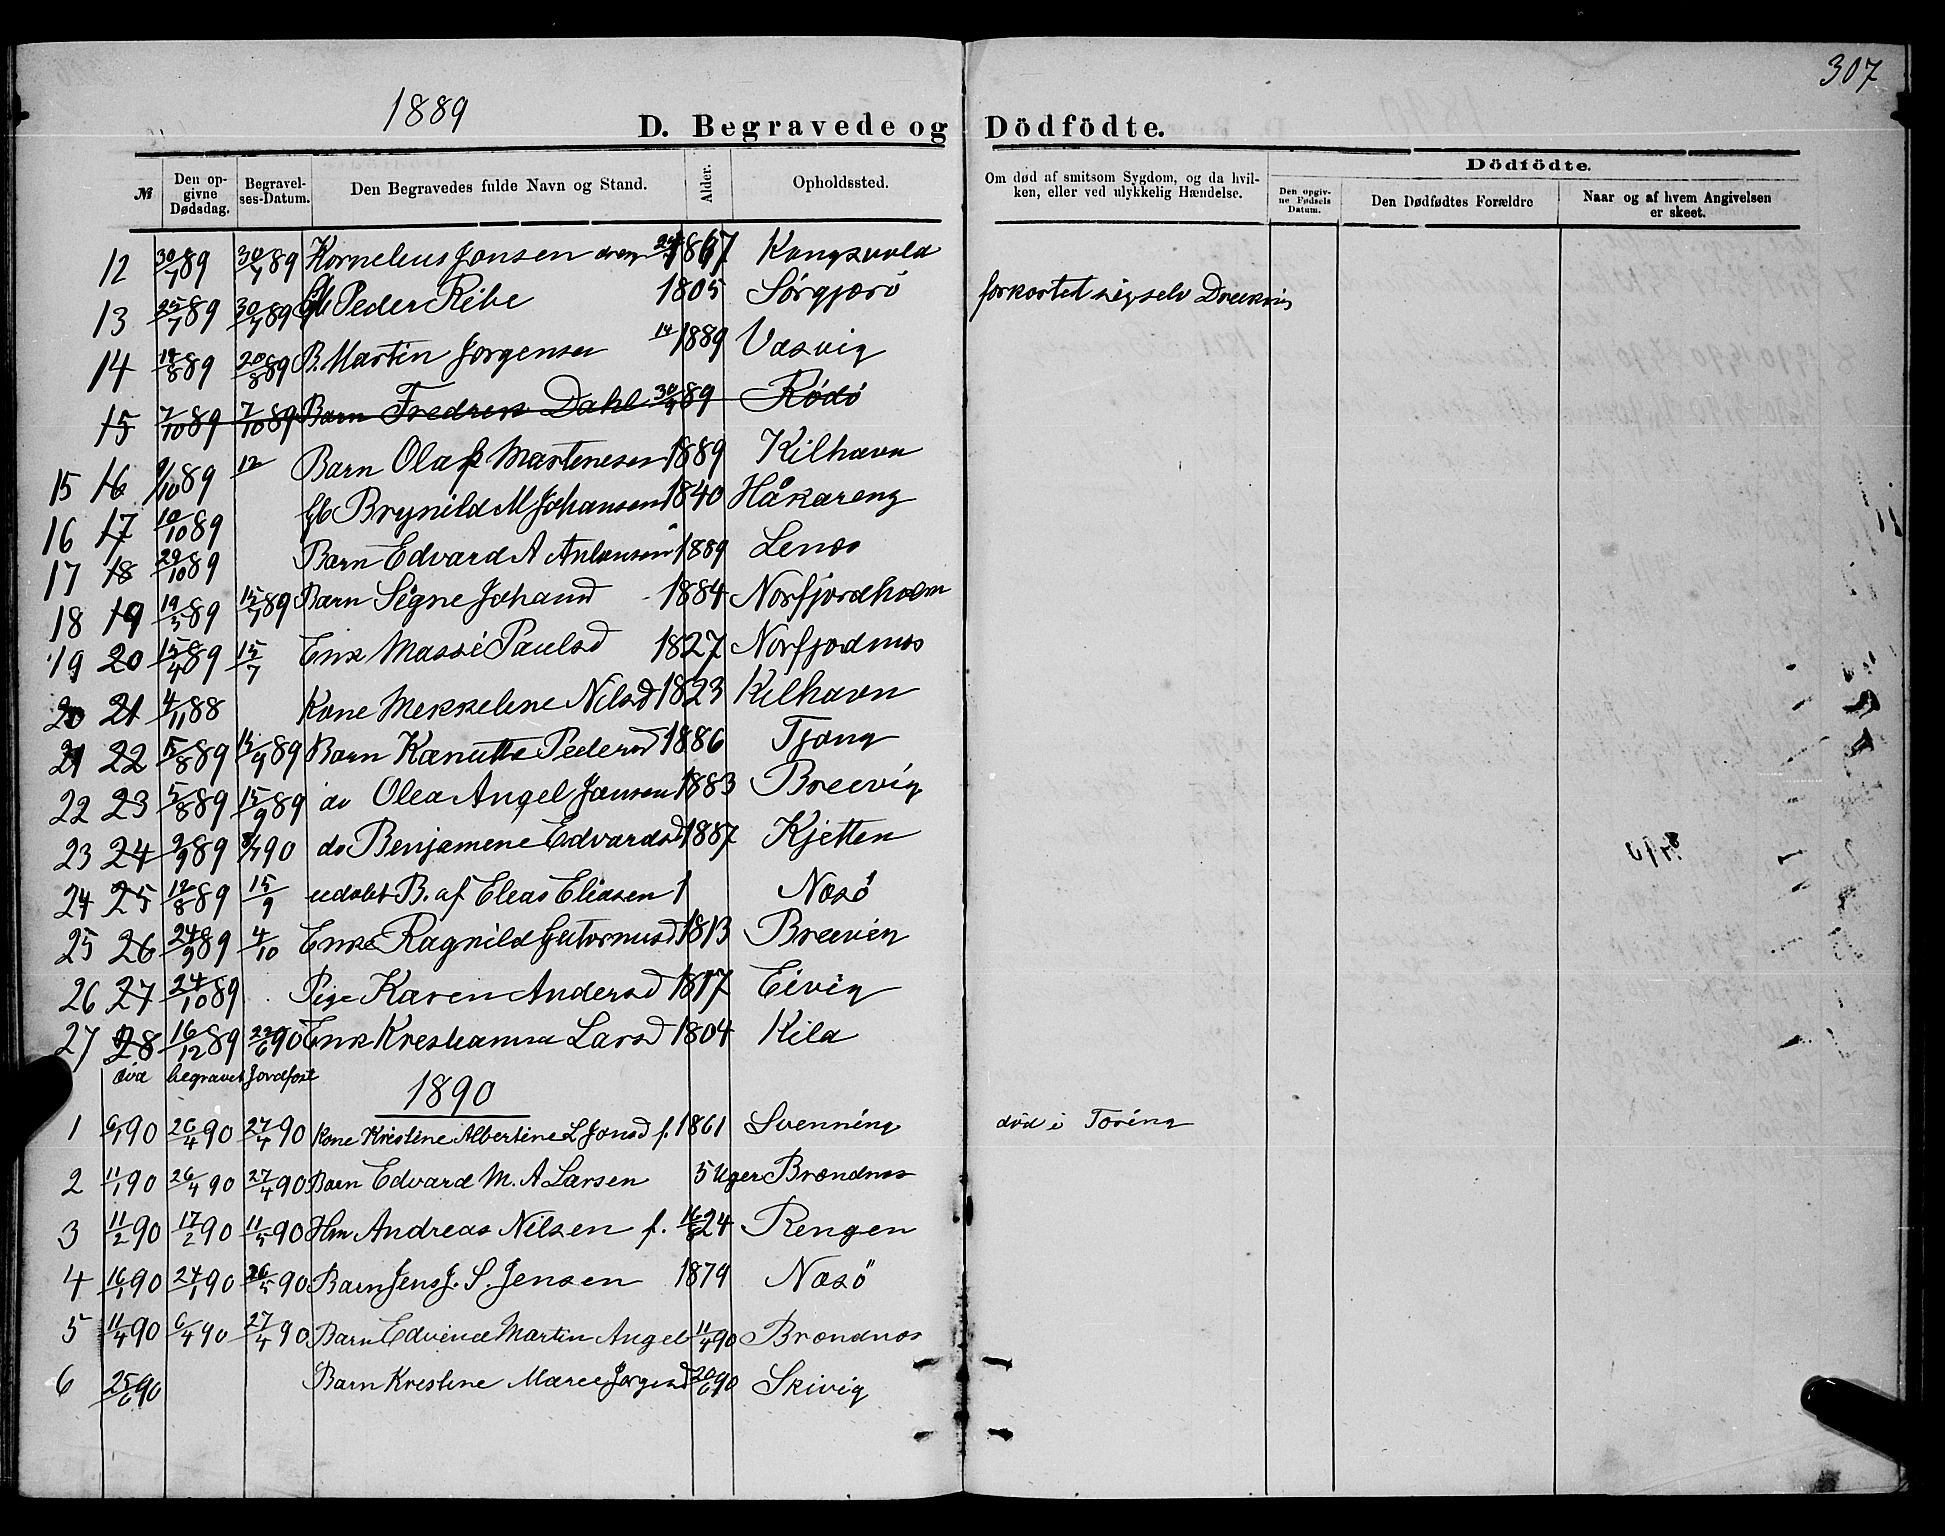 307
1889
D. Begravede og Dödfödte.
№ Den opgivne Dødsdag. Begravelses-Datum. Den Begravedes fulde Navn og Stand. Alder. Opholdssted. Om død af smitsom Sygdom, og da hvilken, eller ved ulykkelig Hændelse. Dödfödte. Den opgivne Fødsels Datum. Den Dødfødtes Forældre Naar og af hvem Angivelsen er skeet.
12 30/7 89 30/7 89 Kornelius Jonsen dreng 1867 Kangsvola
13 25/7 89 30/7 89 Peder Ribe 1805 Sørgjærø forkortet sigselv
14 19/8 89 20/8 89 B. Martin Jørgensen 14 1889 Vasvig
15 7/10 89 7/10 89 Barn Fredrek Dahl 30/9 89 Rødø
15 16 9/10 89 12 Barn Olaf Martenesen 1889 Kilhavn
16 17 10/10 89 fb Brynild M Johansen 1840 Håkareng
17 18 29/10 89 Barn Edvard A Antonsen 1889 Lenæs
18 19 19/5 89 15/7 89 Barn Signe Johansd 1884 Norfjordholm
19 20 15/4 89 15/7 Enk Massi Paulsd 1827 Norfjodnæs
20 21 4/11 88 Kone Mekkelene Nilsd 1823 Kilhavn
21 22 5/8 89 15/9 89 Barn Kanutte Pedersd 1886 Tjong
22 23 5/8 89 15/9 89 do Olea Angel Jansen 1883 Breevig
23 24 2/9 89 8/7 90 do Benjamene Edvardsd 1887 Kjetten
24 25 12/8 89 15/9 udøbt B. af Eleas Eliasen 1 Næsö
25 26 24/9 89 4/10 Enke Ragnild Gutormsd 1813 Breevig
26 27 24/10 89 Pige Karen Andersd 1817 Eivig
27 28 16/12 89 22/6 90 Enk Kresteanna Larsd 1804 Kila
død begravet Jordfæst
1890
1 6/1 90 26/4 90 27/4 90 Kone Kristine Albertine L Jonsd f. 1861 Svenning død i Toring
2 11/1 90 26/4 90 27/4 90 Barn Edvard M. A Larsen 5 Uger Brændnæs
3 11/2 90 17/2 90 11/5 90 Hm Andreas Nilsen f. 16/6 24 Rengen
4 16/1 90 24/1 90 26/5 90 Barn Jens J. S. Jensen 1879 Næsö
5 11/4 90 6/4 90 27/4 90 Barn Edvind Martin Angel 11/4 90 Brændnæs
6 25/6 90 Barn Krestine Maree Jørgensd 20/6 90 Skivig